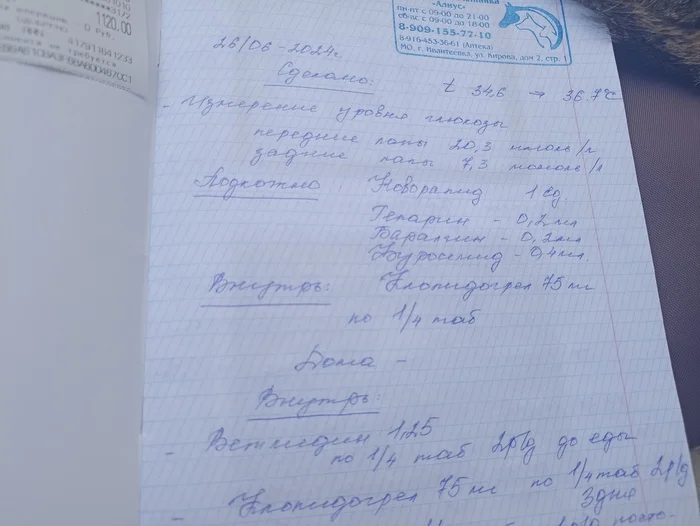 1120.00
41291841233
"Алиус"
пн-пт с 09-00 до 21-00
сб-вс с 09-00 до 18-00
8-909-155-22-10
8-916-453-36-61 (Аптека)
МО, г. Ивантеевка, ул. Кирова, дом 2, стр. 1
26/06-2024г.
Сделано:
t 34,6 → 36.7°C
- Измерение уровня глюкозы
передние лапы 20,3 ммоль/л
задние лапы 7,3 ммоль/л
Подкожно: Новорапид 1 ед.
Гепарин - 0,2 мл
Баралгин - 0,2 мл
Фуросемид - 0,4 мл.
Внутрь: Клопидогрел 75 мг
по 1/4 таб
Дома -
Внутрь:
- Ветмедин 1,25
по 1/4 таб 2р/д до еды
- Клопидогрел 75 мг по 1/4 таб 2р/д
3 дня